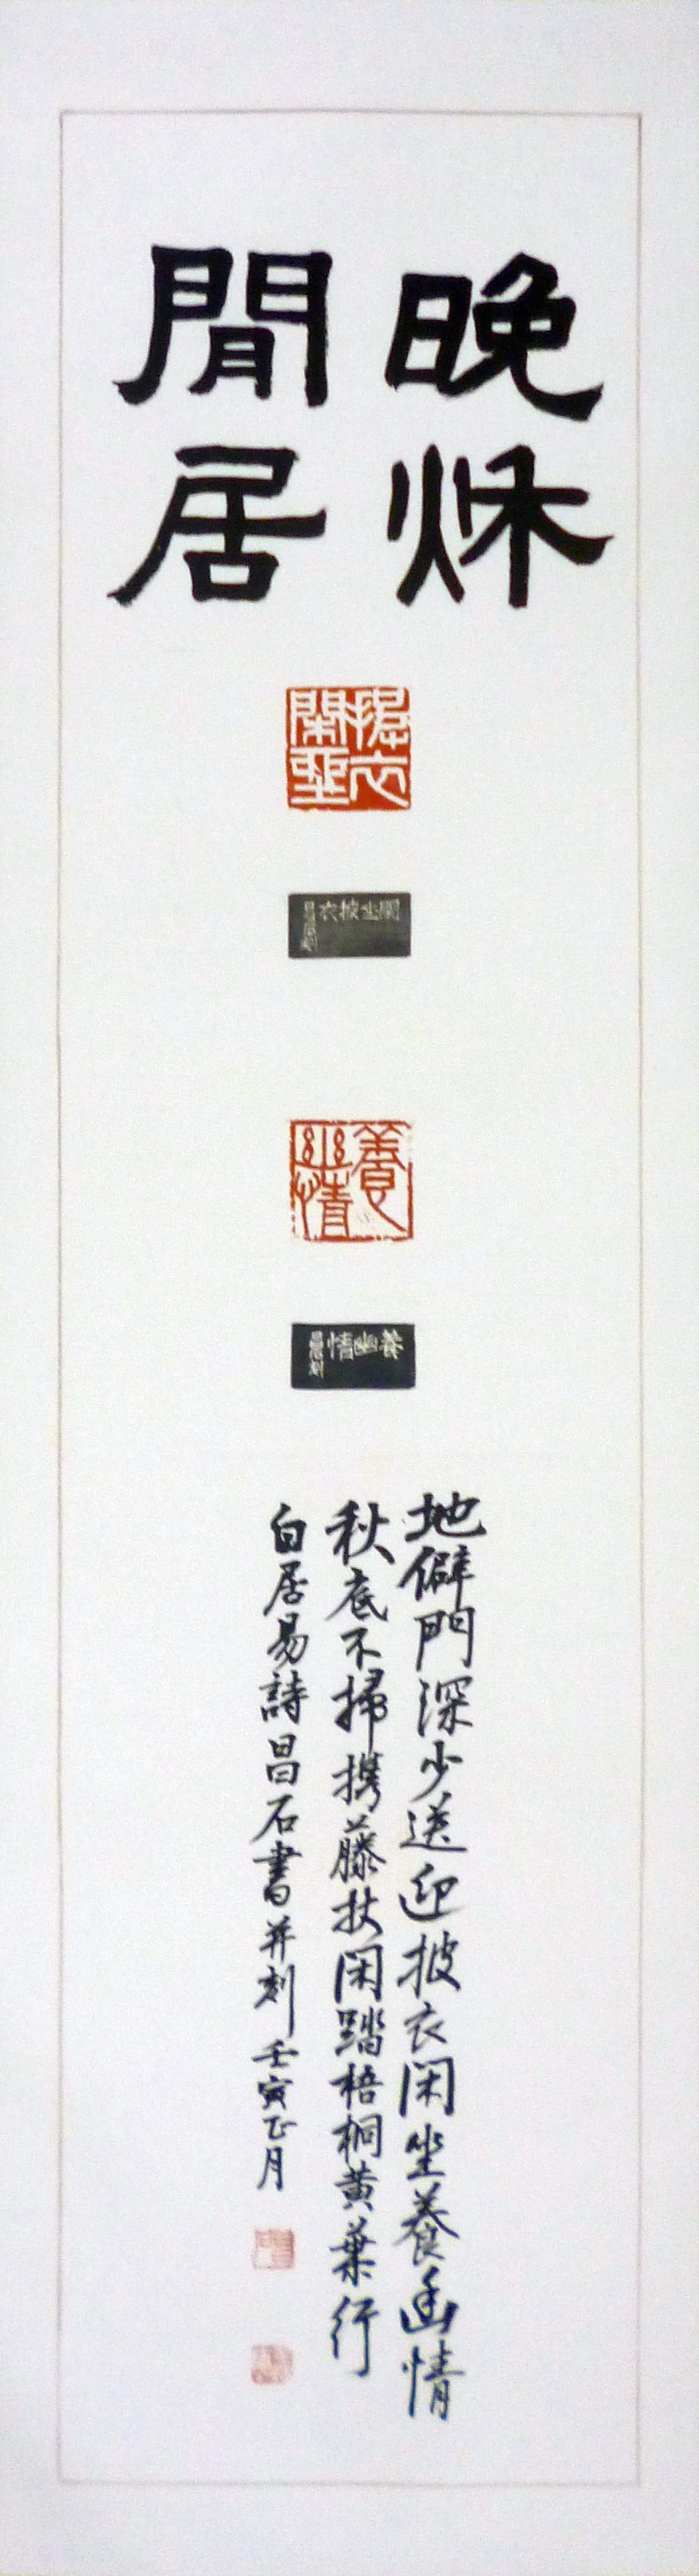 晚秌
閒居
披衣
閑坐
閑坐披衣
昌石刻
養
幽情
養幽情
昌石刻
地僻門深少送迎披衣閑坐養幽情
秋底不掃携藤杖閑踏梧桐黄葉行
白居易詩昌石書并刻壬寅正月